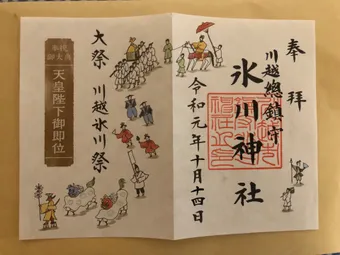 奉拝
川越總鎮守
氷川神社
令和元年十月十四日
大祭 川越氷川祭
天皇陛下御即位